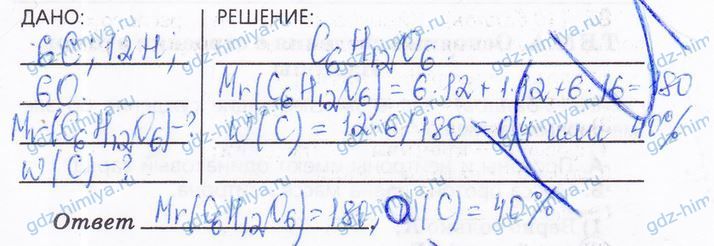 ДАНО:
6C; 12H;
6O.
Mr(C₆H₁₂O₆)-?
W(C)-?
РЕШЕНИЕ:
C₆H₁₂O₆
Mr(C₆H₁₂O₆) = 6·12+1·12+6·16=180
W(C) = 12·6/180 = 0,4 или 40%
Ответ Mr(C₆H₁₂O₆)=180, W(C)=40%
gdz-himiya.ru